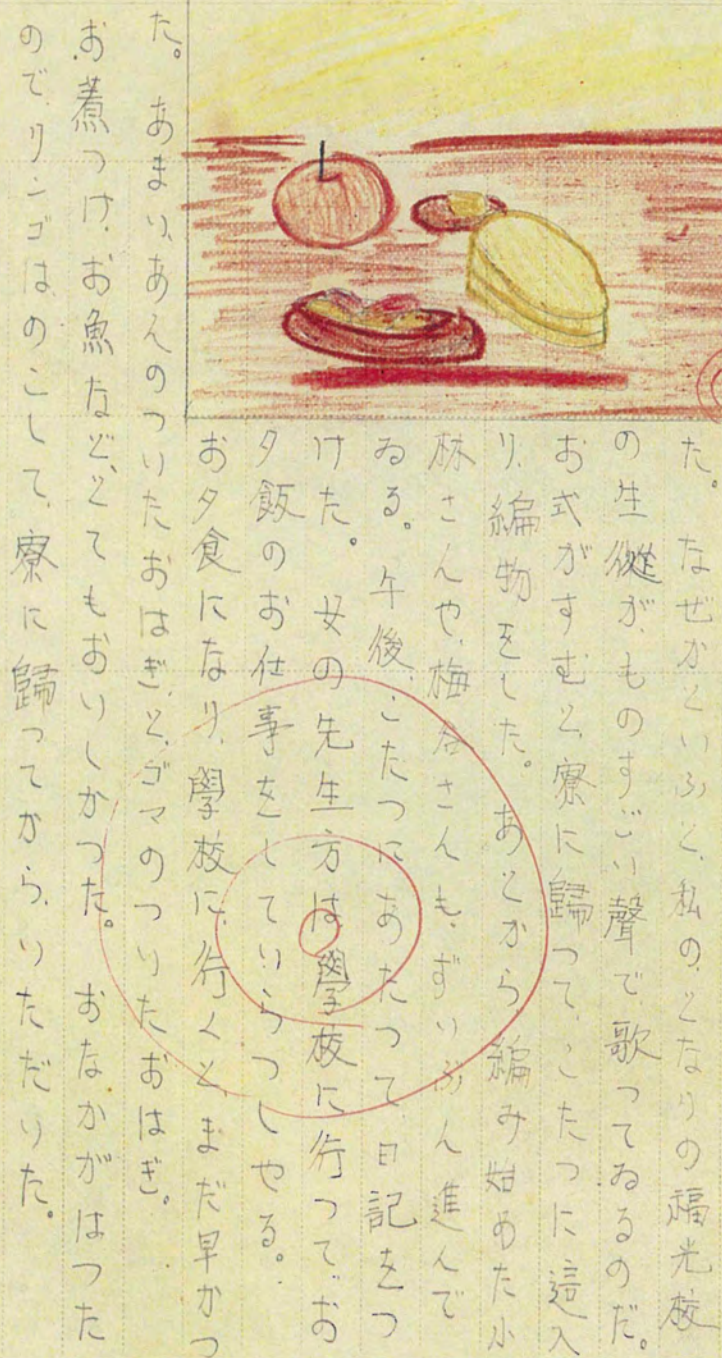 た。なぜかといふと、私の、となりの福光校
の生徒が、ものすごい聲で、歌つてゐるのだ。
お式がすむと、寮に歸つて、こたつに這入
り、編物をした。あとから、編み始めた小
林さんや、梅谷さんも、ずいぶん進んで
ゐる。午後、こたつにあたつて、日記をつ
けた。女の先生方は學校に行つて、お
夕飯のお仕事をしていらつしやる。
お夕食になり、學校に、行くと、まだ早かつ
た。あまり、あんのついたおはぎと、ゴマのついたおはぎ。
お煮つけ、お魚など、とてもおいしかつた。おなかがはつた
ので、リンゴはのこして、寮に歸つてから、いただいた。